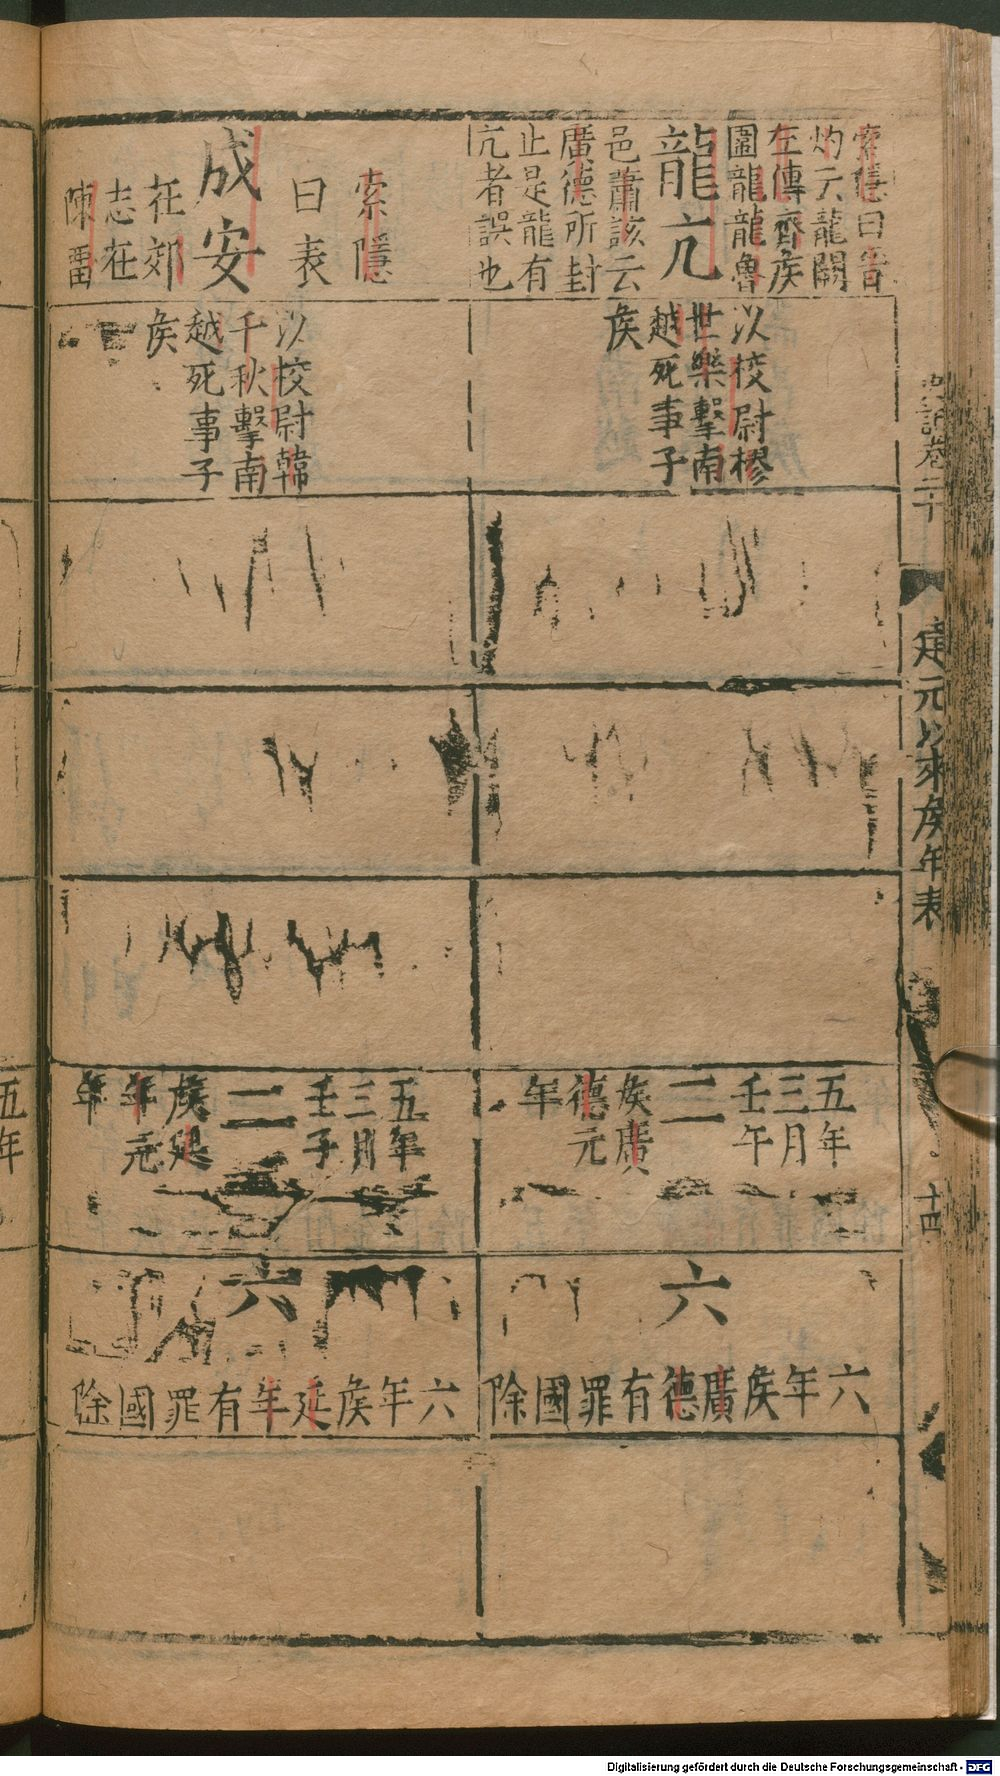 索隱曰晉
灼云龍闕
左傳齊矦
圍龍龍魯
龍亢
邑蕭該云
廣德所封
止是龍有
亢者誤也
以校尉樛
世樂擊南
越死事子
矦
五年
三月
壬午
二
矦廣
德元
年
六
六年矦廣德有罪國除
索隱
曰表
成安
在郟
志在
陳留
以校尉韓
千秋擊南
越死事子
矦
五年
三月
壬子
二
矦延
年元
年
六
六年矦延年有罪國除
史記卷二十
建元以來矦年表
十四
五年
Digitalisierung gefördert durch die Deutsche Forschungsgemeinschaft - DFG